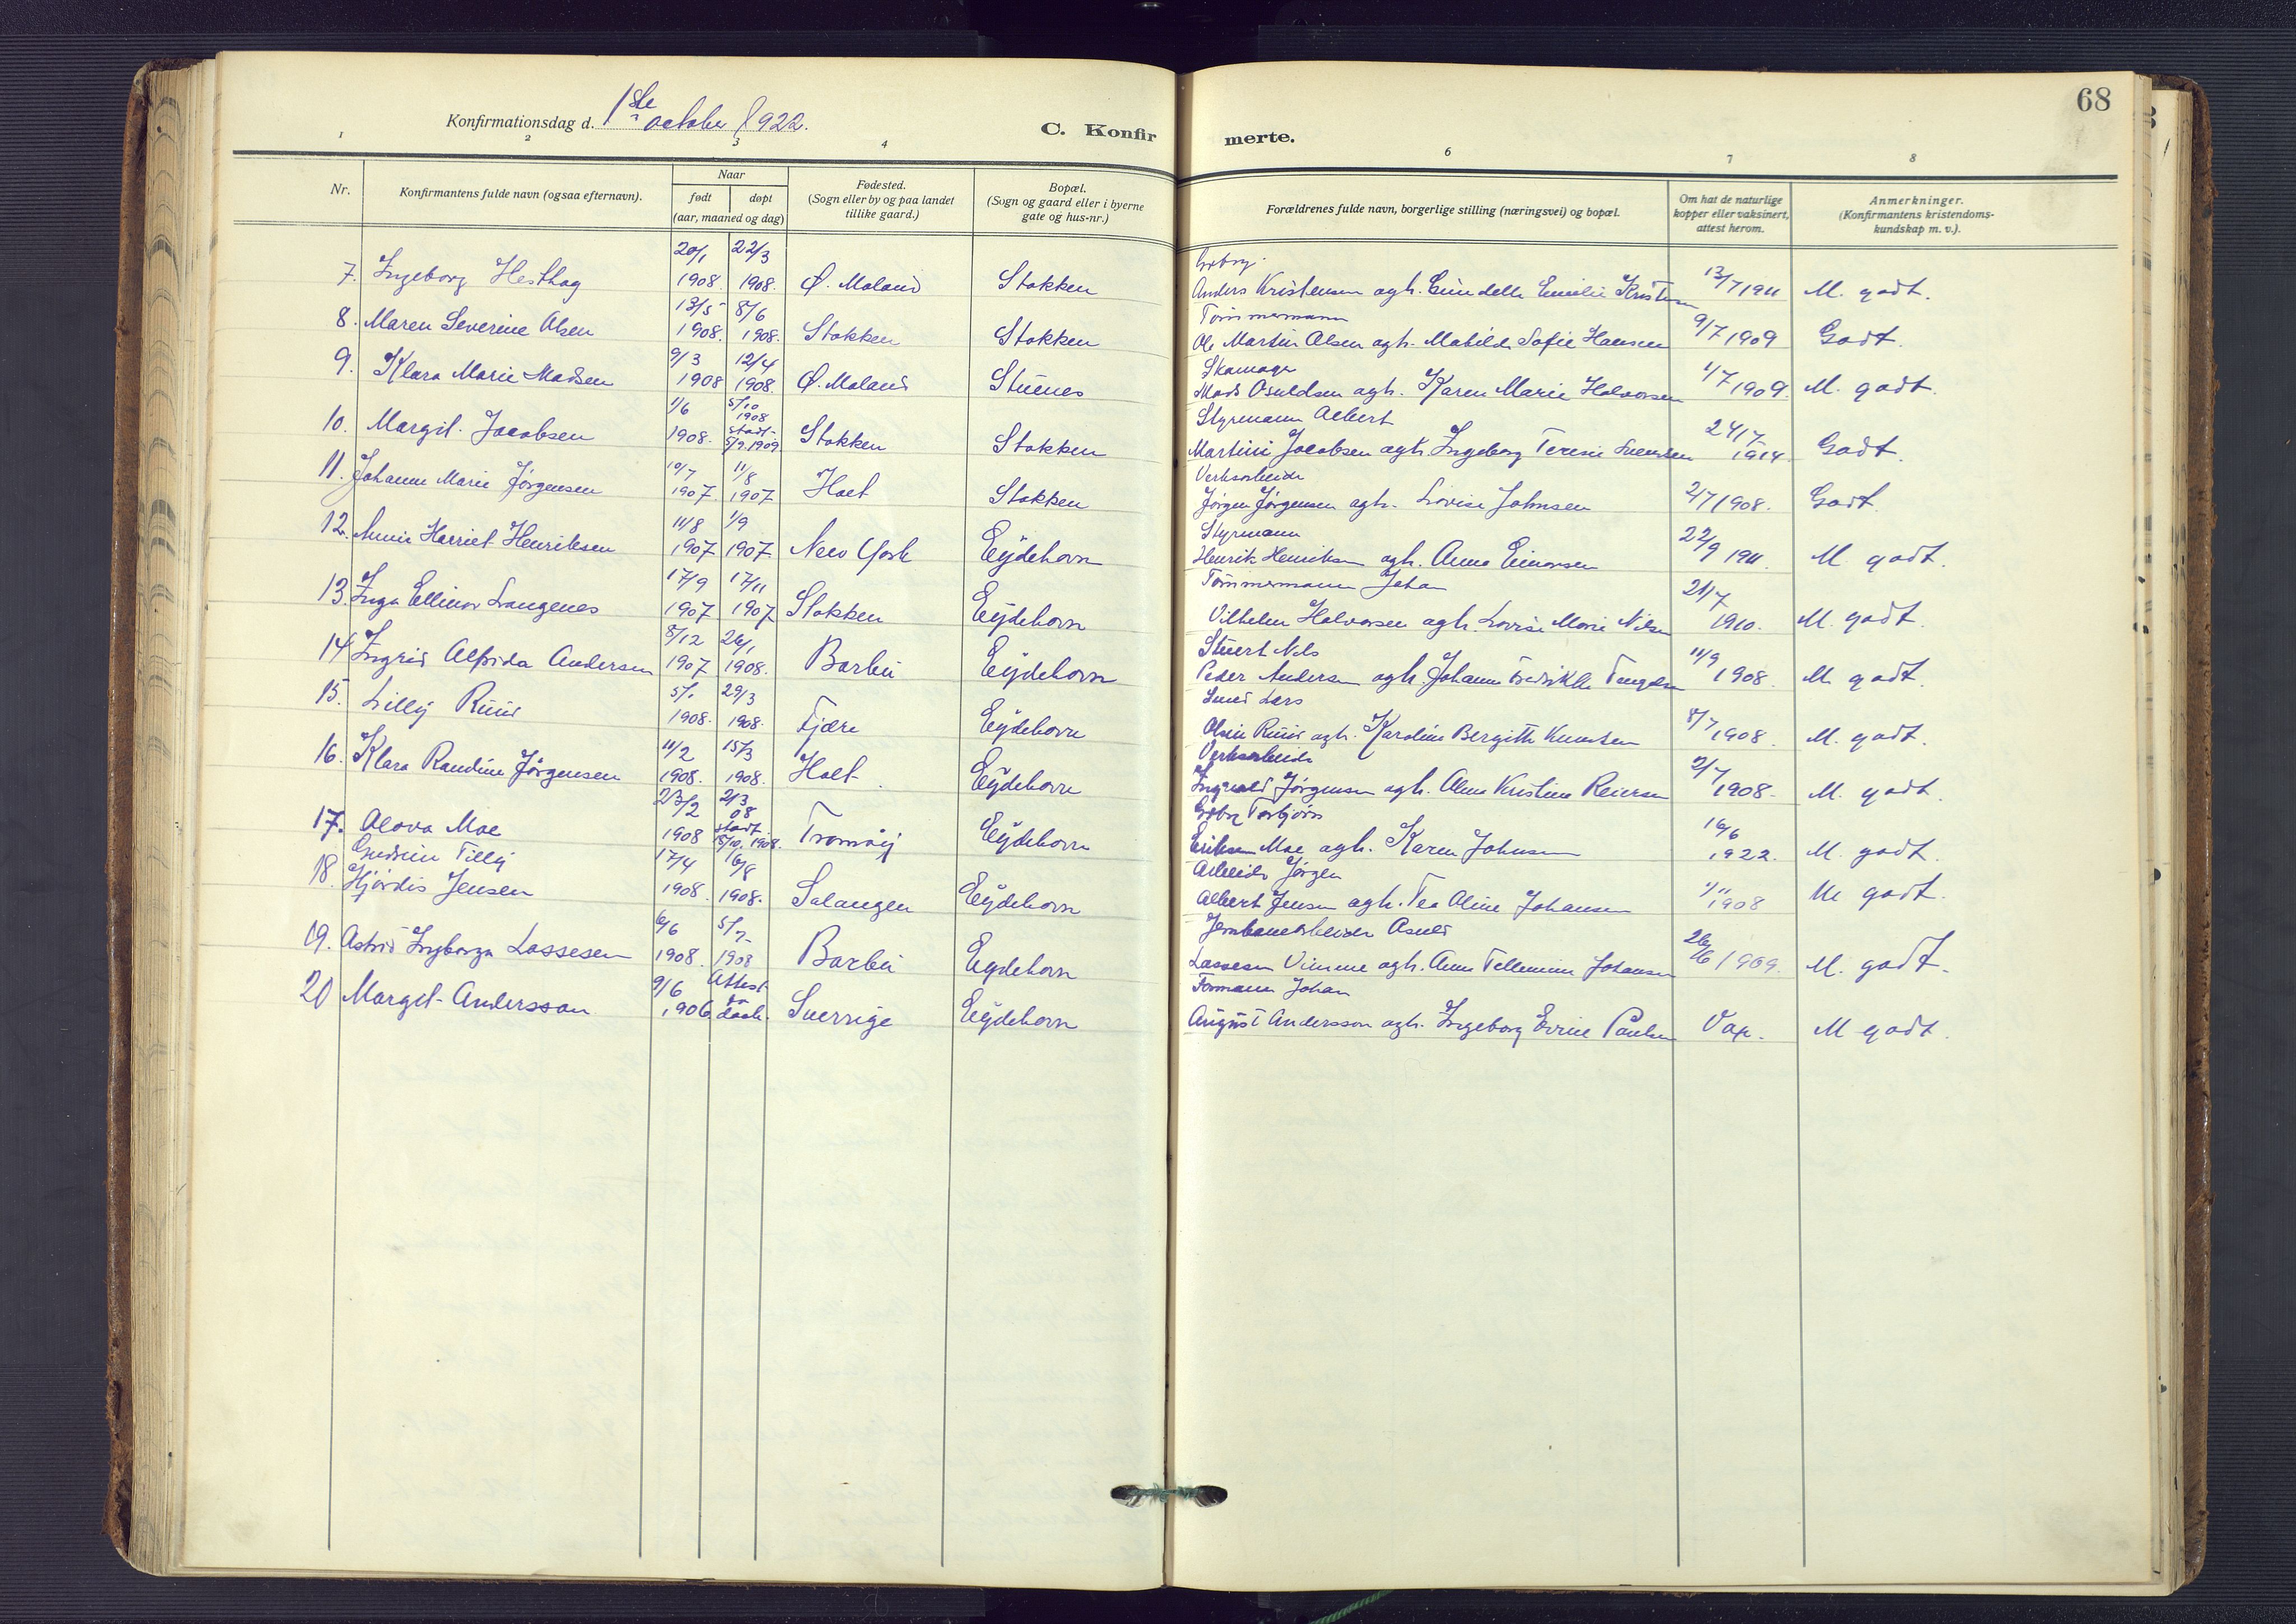 68
Konfirmationsdag d. 1ste october 1922.
C. Konfirmerte.
1 2 3 4 6 7 8
Nr. Konfirmantens fulde navn (ogsaa efternavn). Naar født døpt (aar, maaned og dag) Fødested. (Sogn eller by og paa landet tillike gaard.) Bopæl. (Sogn og gaard eller i byerne gate og hus-nr.) Forældrenes fulde navn, borgerlige stilling (næringsvei) og bopæl. Om hat de naturlige kopper eller vaksinert, attest herom. Anmerkninger. (Konfirmantens kristendoms-kundskap m. v.).
7. Ingeborg Hesthag 20/1 1908. 22/3 1908. Ø. Moland Stokken Anders Kristensen agh. Gundelle Emilie Kristensen 13/7 1911 M. godt.
8. Maren Severine Olsen 13/5 1908. 8/6 1908. Stokken Stokken Tømmermann Ole Martin Olsen agh. Mathilde Sofie Hansen 9/7 1909 Godt.
9. Klara Marie Madsen 9/3 1908 12/4 1908. Ø. Moland Stuenes Skomager Mads Osuldsen agh. Karen Marie Halvorsen 1/7 1909. M. godt.
10. Margit Jacobsen 1/6 1908. 5/10 1908 stadf. 5/9 1909 Stokken Stokken Styrmann Albert Martini Jacobsen agh. Ingeborg Teresie Svendsen 24/7 1914. Godt.
11. Johanne Marie Jørgensen 10/7 1907 11/8 1907 Holt Stokken Verksarbeider Jørgen Jørgensen agh. Lovise Johnsen 2/7 1908. Godt.
12. Annie Harriet Henriksen 11/8 1907 1/9 1907 New York Eydehavn Styrmann Henrik Henriksen agh. Anna Einarsen 22/9 1911. M godt.
13. Inga Ellinor Langenes 17/9 1907 17/11 1907 Stokken Eydehavn Tømmermann Johan Vilhelm Halvorsen agh. Lovise Marie Nilsen 21/7 1910. M. godt.
14 Ingrid Alfrida Andersen 8/12 1907 26/1 1908. Barbu Eydehavn Stuert Nils Peder Andersen agh. Johanne Fredrikke 11/9 1908. M. godt.
15. Lilly Ruud 5/1 1908. 29/3 1908. Fjære Eydehavn Smed Lars Ruud agh. Karoline Bergitte Knutsen 8/7 1908. M. godt.
16. Klara Randine Jørgensen 11/2 1908. 15/3 1908. Holt Eydehavn Verksarbeider Ingvald Jørgensen agh. Alma Kristine Reiersen 2/7 1908. M. godt.
17. Alova Moe 23/2 1908 2/3 08 stadf. 18/10 1908. Tromøy Eydehavn Torbjørn Eriksen Moe agh. Karen Johnsen 16/6 1922. M. godt.
18. Gudrun Tilly Hjørdis Jensen 17/4 1908. 16/8 1908. Salangen Eydehavn Arbeider Jørgen Albert Jensen agh. Tea Oline Johansen 1/11 1908 M godt.
19. Astrid Ingeborga Lassesen 6/6 1908. 5/7 1908 Barbu Eydehavn Jernbanearbeider Lassesen agh. Anna Johansen 26/6 1909. M. godt.
20 Margit Andersson 9/6 1906. Attest for daab. Sverrige Eydehavn Formann Johan August Andersson agh. Ingeborg Paulsen Vax. M godt.